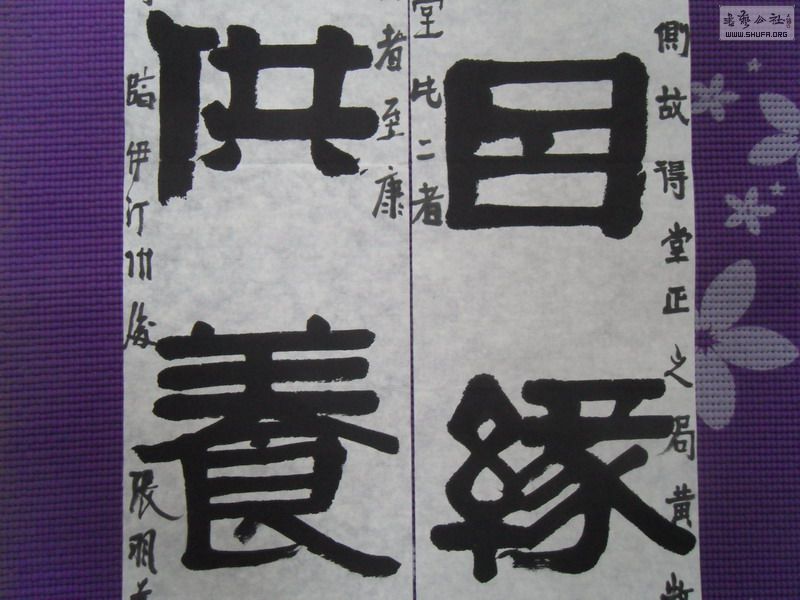 側故得堂正之局黄
因緣
堂此二者
者至康
供養
臨伊汀州後 張明
www.SHUFA.ORG